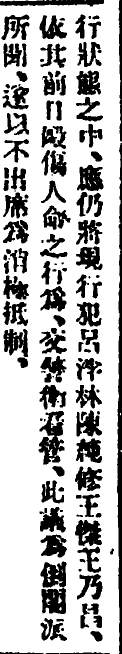 行狀態之中、應仍將現行犯呂泮林陳純修王傑王乃昌、
依其前日毆傷人命之行爲、交警衛看管、此議爲倒閣派
所聞、遂以不出席爲消極抵制、